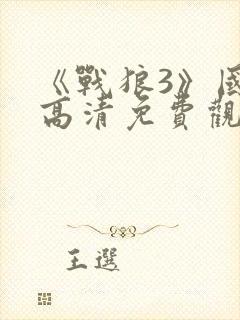 《戰狼3》國
高清免費觀
王選